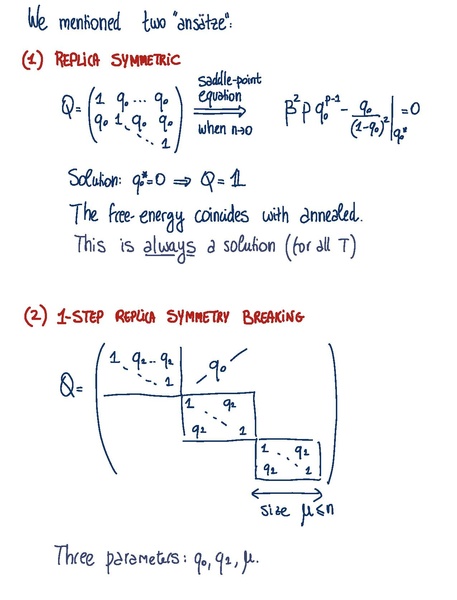 We mentioned two "ansätze":
(1) REPLICA SYMMETRIC
Q = ( 1 q₀ ... q₀
q₀ 1 q₀ q₀
1 )
saddle-point
equation
when n→0
β²p q₀^{p-1} - q₀/(1-q₀)² |_{q₀*} = 0
Solution: q₀*=0 ⇒ Q = 𝟙
The free-energy coincides with annealed.
This is always a solution (for all T)
(2) 1-STEP REPLICA SYMMETRY BREAKING
Q = ( 1 q₂ .. q₂
1
q₀
1 q₂
q₂ 1
1 q₂
q₂ 1 )
size μ≤n
Three parameters: q₀, q₂, μ.